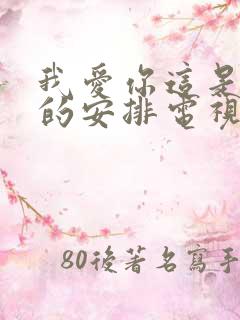 我愛你這是
的安排電視
80後著名寫手